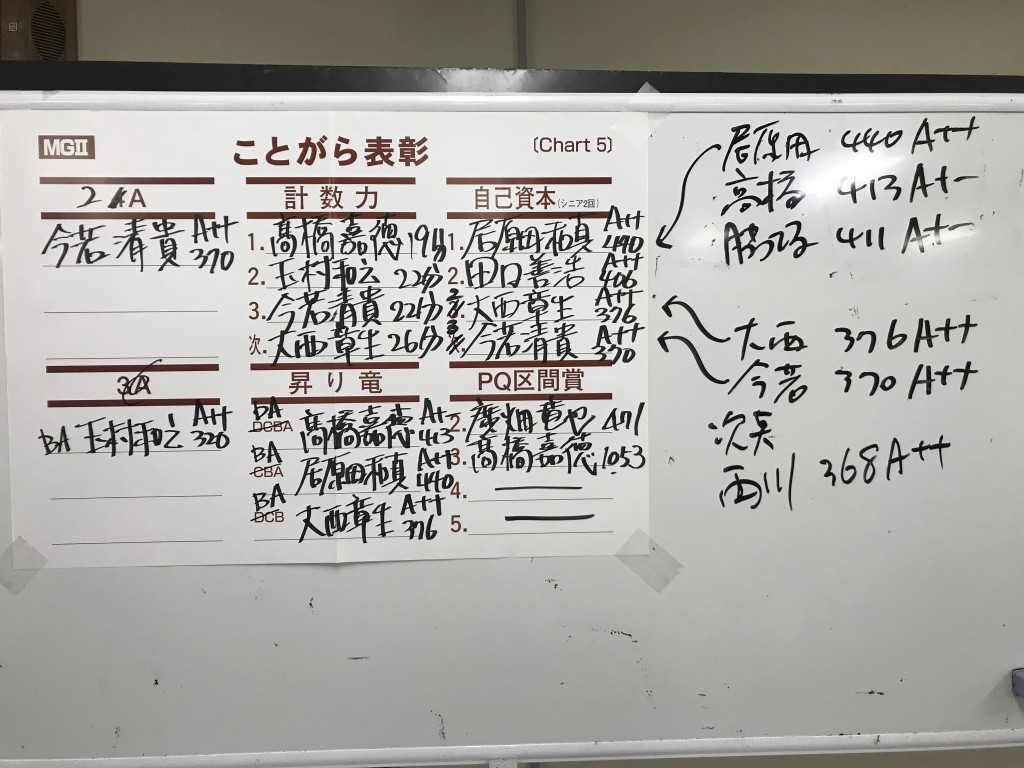 MGⅡ
ことがら表彰
〔Chart 5〕
2A
今若清貴 A++ 370
3A
BA 玉村和云 A++ 320
計数力
1. 髙橋嘉德 19分
2. 玉村和云 22分
3. 今若清貴 22分
次. 大西章生 26分
昇り竜
BA DCBA 髙橋嘉德 A+- 413
BA CBA 居原田積真 A++ 440
BA DCB 大西章生 A++ 376
自己資本(シニア2回)
1. 居原田積真 A++ 440
2. 田口善浩 A++ 406
大西章生 A++ 376
今若清貴 A++ 370
PQ区間賞
2. 廣畑竜也 471
3. 髙橋嘉德 1053
4.
5.
居原田 440 A++
高橋 413 A+-
411 A+-
大西 376 A++
今若 370 A++
次点
西川 368 A++